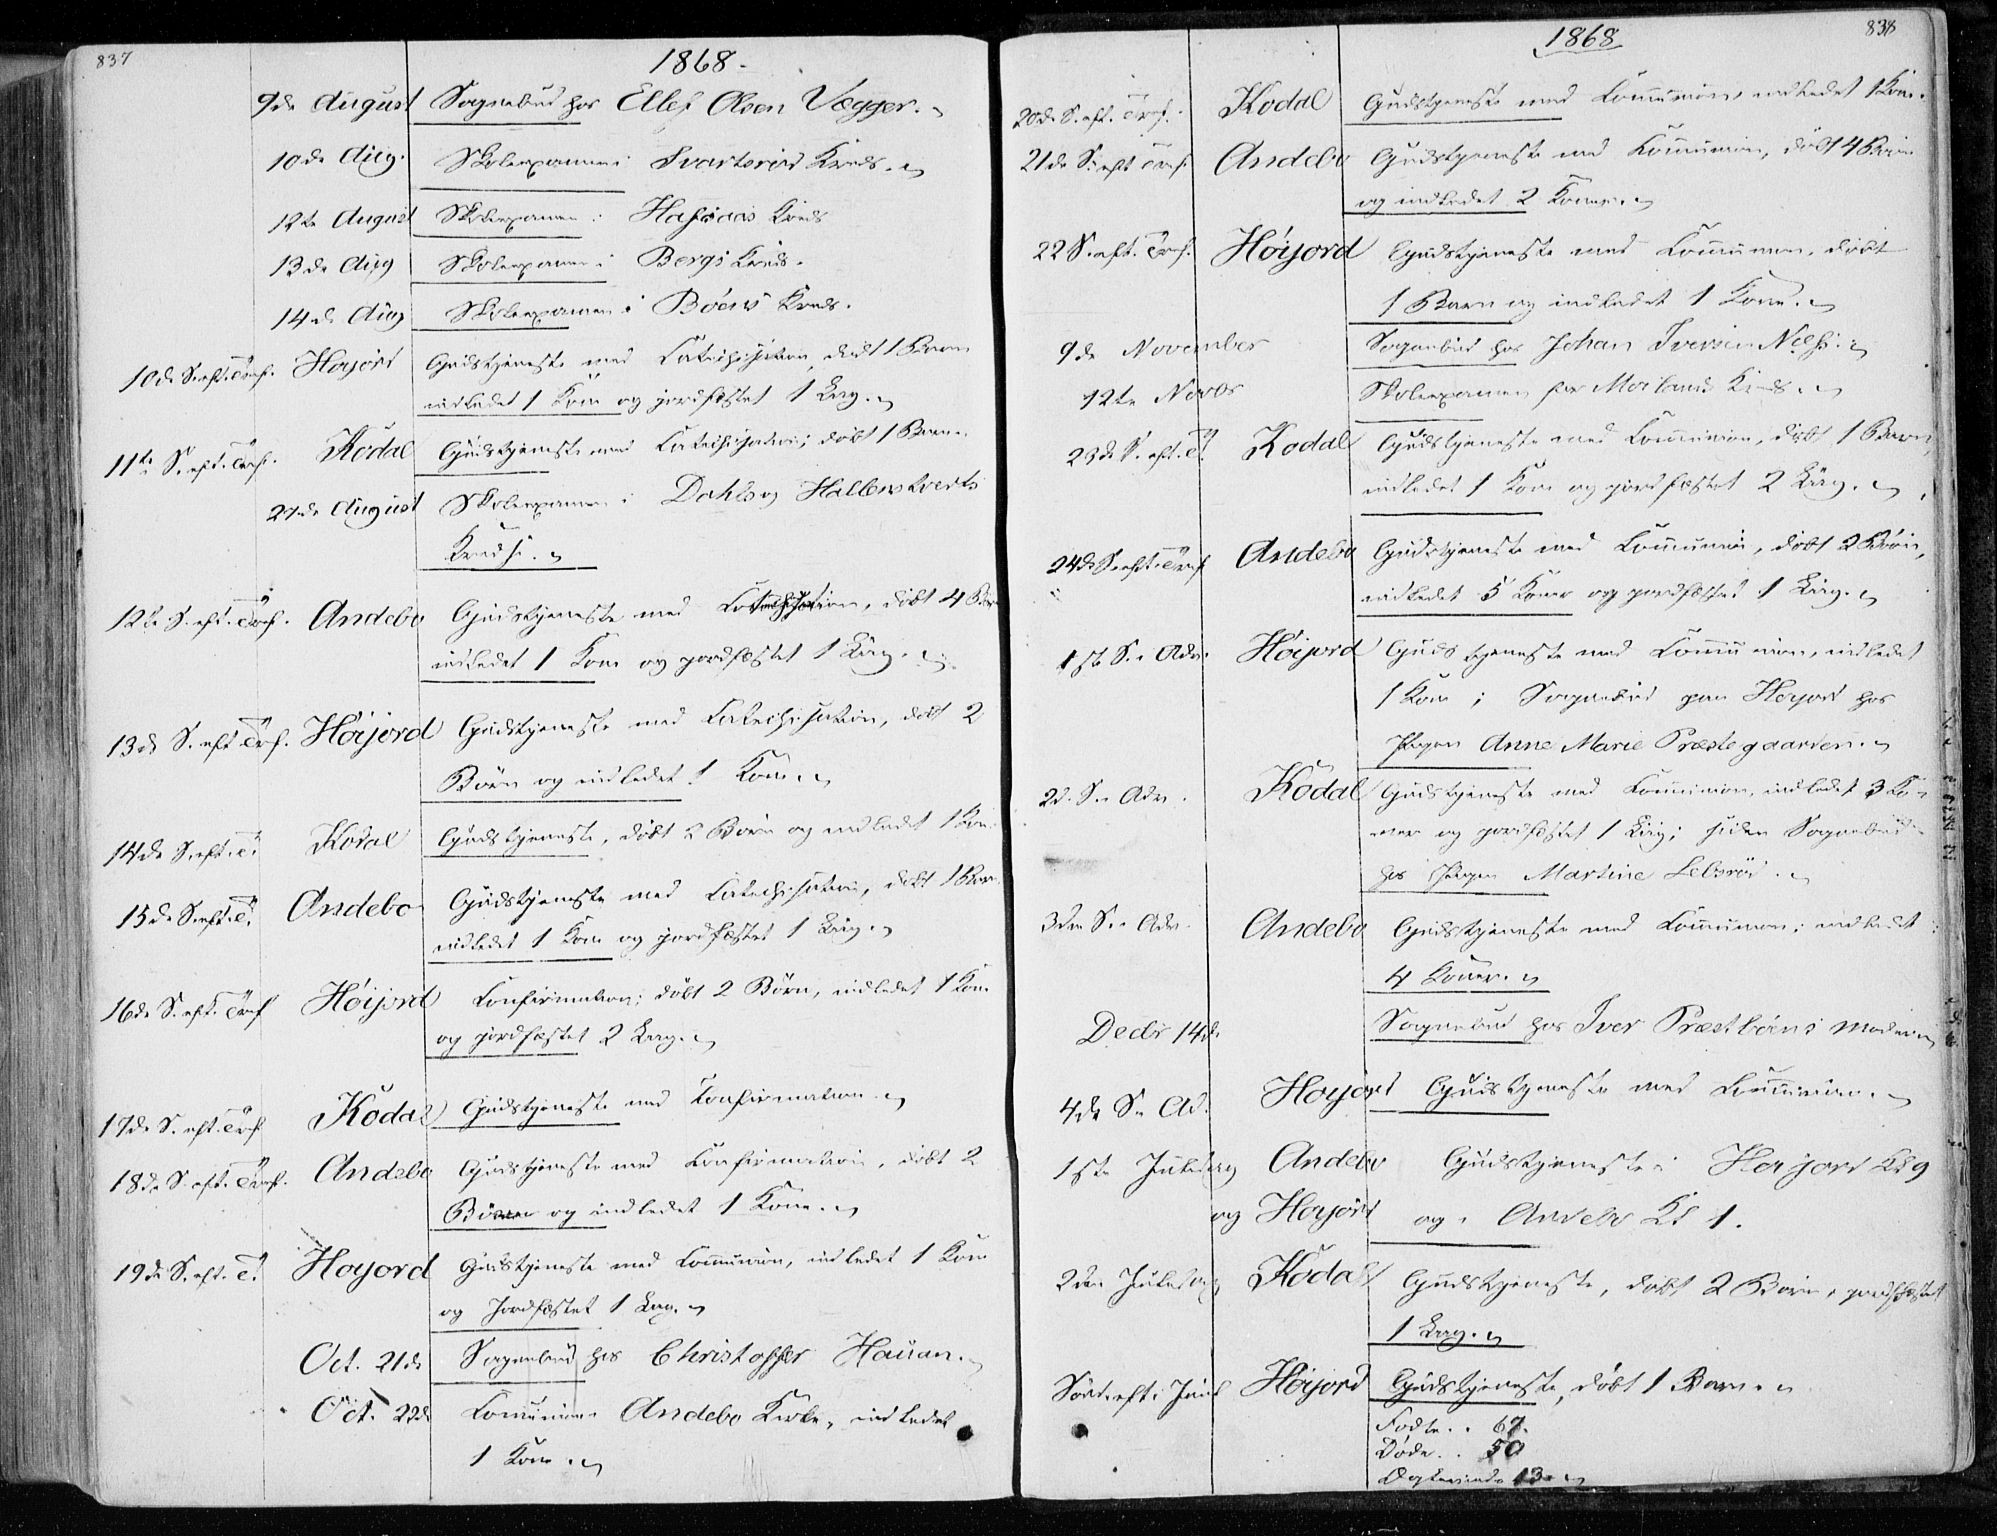 837
1868.
9de August Sognebud hos Ellef Olsen Vegger.
10de Aug. Skoleexamen i Svartsrød Kreds.
12te August Skoleexamen i Kreds
13de Aug Skoleexamen i Bergs Kreds.
14de Aug Skoleexamen i Böens Kreds.
10de S. eft. Tref. Høyord Gudstjeneste med Catechisation, døbt 1 Barn
indledet 1 Kone og jordfæstet 1 Liig.
11te S. eft. Tref. Kodal Gudstjeneste med Catechisation; døbt 1 Barn.
27de August Skoleexamen i Dahls og Hallenskverts
Kredse.
12te S. eft. Tref. Andebo Gudstjeneste med Catechisation, døbt 4 Børn
indledet 1 Kone og jordfæstet 1 Liig.
13de S. eft Tref. Høijord Gudstjeneste med Catechisation, døbt 2
Börn og indledet 1 Kone.
14de S. eft. T. Kodal Gudstjeneste, døbt 2 Börn og indledet 1 Kone
15de S. eft. T. Andebo Gudstjeneste med Catechisation, døbt 1 Barn
indledet 1 Kone og jordfæstet 1 Liig.
16de S. eft. Tref Høijord Confirmation; döbt 2 Börn, indledet 1 Kone
og jordfæstet 2 Liig.
17de S. eft. Tref Kodal Gudstjeneste med Confirmation.
18de S. eft. Tref. Andebo Gudstjeneste med Confirmation, døbt 2
Börn og indledet 1 Kone.
19de S. eft. T. Høyord Gudstjeneste med Communion, indledet 1 Kone
og Jordfæstet 1 Liig.
Oct. 21de Sognebud hos Christoffer Hauan.
Oct. 22de Communion i Andebo Kirke, indledet
1 Kone.
1868
838
20de S. eft. Tref. Kodal Gudstjeneste med Communion, indledet 1 Kone.
21de S. eft Tref. Andebo Gudstjeneste med Communion, døbt 4 Börn
og indledet 2 Koner.
22 S. eft. Tref. Høyjord Gudstjeneste med Communion, døbt
1 Barn og indledet 1 Kone.
9de November Sognebud hos Johan Iversen
12te Novbr Skoleexamen for Møilands Kreds.
23de S. eft. T. Kodal Gudstjeneste med Communion, döbt 1 Barn,
indledet 1 Kone og jordfæstet 2 Liig.
24de S. eft. Tref Andebo Gudstjeneste med Communion, döbt 2 Börn,
indledet 5 Koner og jordfæstet 1 Liig.
1ste S. i Adv. Høijord Gudstjeneste med Communion, indledet
1 Kone; Sognebud paa Høyord hos
Pigen Anne Marie Præstegaarden.
2d. S. i Adv. Kodal Gudstjeneste med Communion, indledet 3 Ko-
ner og jordfæstet 1 Liig; siden Sognebud
hos Pigen Martine Lebsröd.
3die S. i Adv. Andebo Gudstjeneste med Communion; indledet
4 Koner.
Decbr 14de Sognebud hos Iver Præstbøens Moder
4de S. i Ad. Høyord Gudstjeneste med Communion.
1ste Juledag Andebo Gudstjeneste i Høijord Kl 9
og Høyord og i Andebo Kl 1.
2den Juledag Kodal Gudstjeneste, døbt 2 Børn, jordfæstet
1 Liig.
Sönd. eft. Juul Høijord Gudstjeneste, døbt 1 Barn.
Födte.. 67.
Døde.. 50
Ægteviede 13.